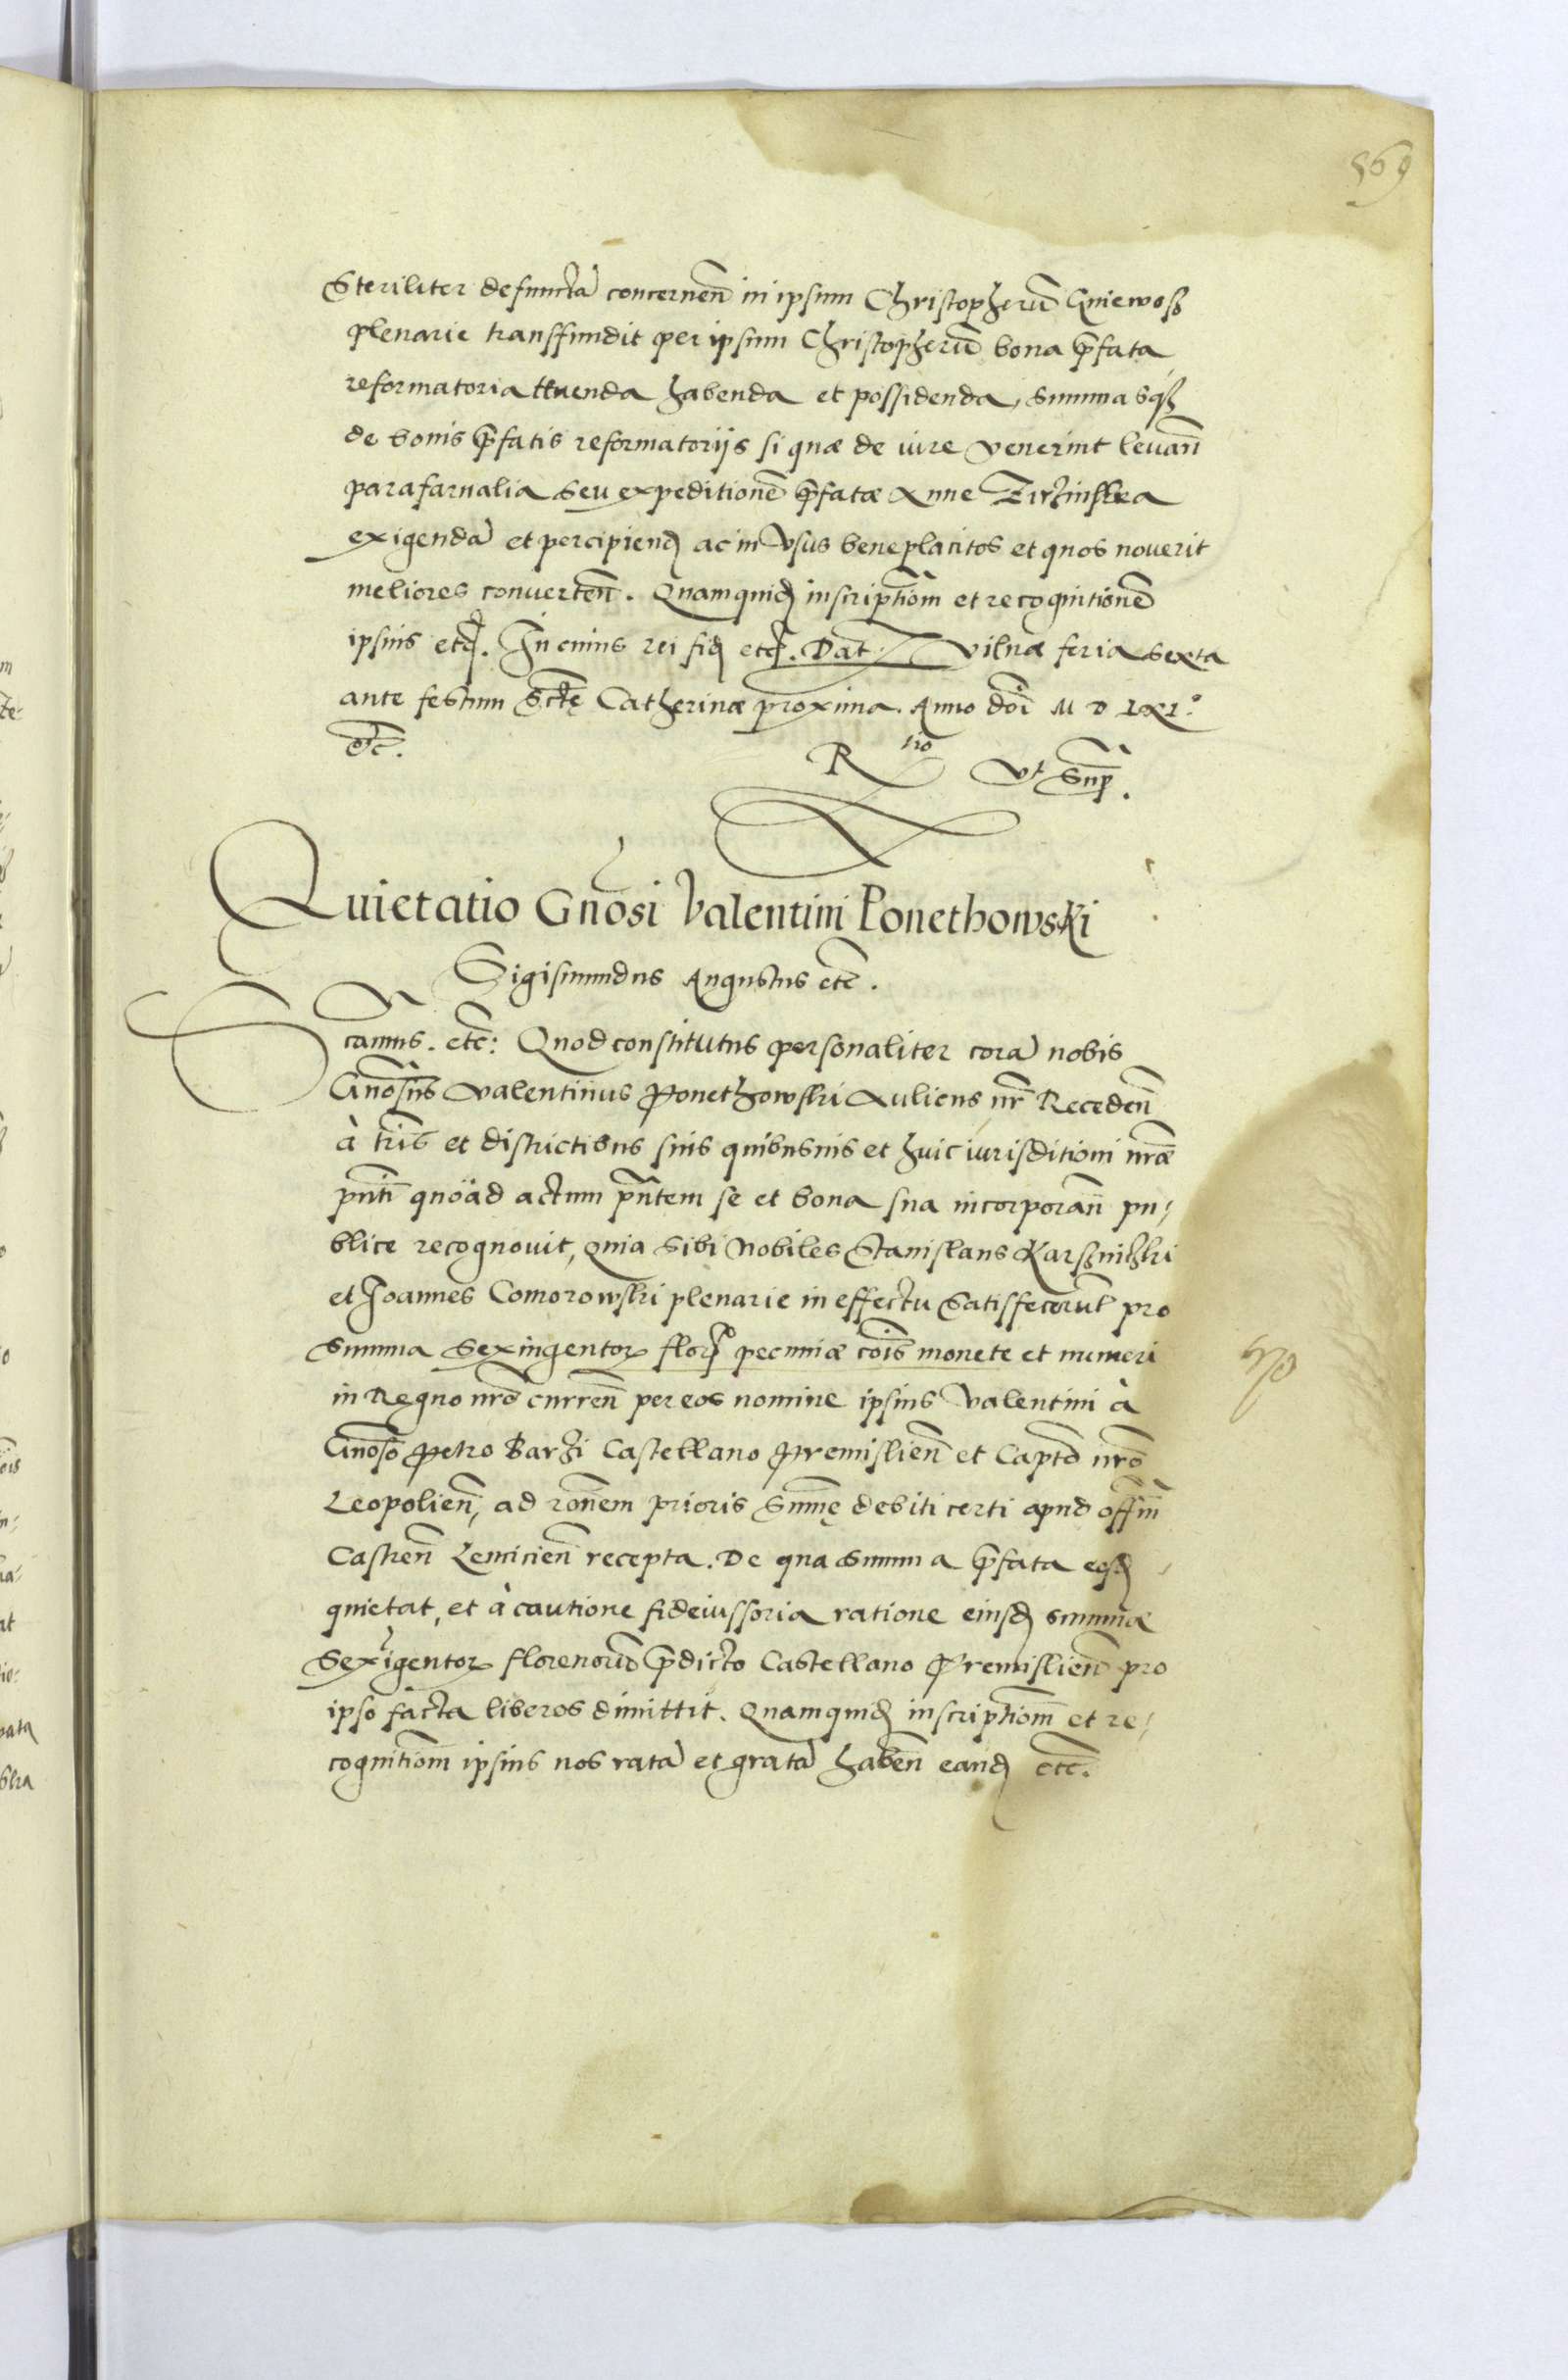 569
Steriliter defunctã concernen̄ in ipsum Christopherũ Gniewosz
plenarie transfundit per ipsum Christopherũ bona p̄fata
reformatoria tenenda habenda et possidenda, summasq₃
de bonis p̄fatis reformatorijs si quæ de iure venerint levan̄
parafarnalia seu expeditionē p̄fatæ Anne
exigendã et percipiend ac in Vsus beneplacitos et quos noverit
meliores converten̄. Quamquid inscriptiōm et recognitionē
ipsius etc. In cuius rei fid etc. Dat Vilnæ feria sexta
ante festum Sctę Catherinæ proxima. Anno dōi M D LXI°
etc.
R tio Vt Sup.
Quietatio Gnōsi Valentini Ponethowski
Sigismundus Augustus etc̄.
Scamus. etc̄: Quod constitutus personaliter corã nobis
Gnōsus Valentinus Ponethowski Auliens nr̄ Receden̄
à tr̄is et districtibus suis quibusuis et huic iurisditioni nr̄æ
pn̄ti quoad actum pn̄tem se et bona sua incorporan̄ pu,
blice recognovit, quia sibi Nobiles Stanislaus Karsznitzki
et Joannes Comorowski plenarie in effectu satisfecerūt pro
summa sexingentor flor pecuniæ cōis monete et numeri
in Regno nr̄o curren̄ per eos nomine ipsius Valentini à
Gnōso Petro Barzi Castellano Premislien̄ et Captō nr̄o
Leopolien̄, ad rōnem prioris Sum̄ę debiti certi apud offm̄
Castren̄ Lencicien̄ recepta. De qua summa p̄fata eosd
quietat, et à cautione fideiussoria ratione eiusd summæ
Sexigentor florenorũ p̄dicto Castellano Premislien̄ pro
ipso facta liberos dimittit. Quamquid inscriptiōm et re,
cognitiōm ipsius nos ratã et gratã haben̄ eand etc̄.